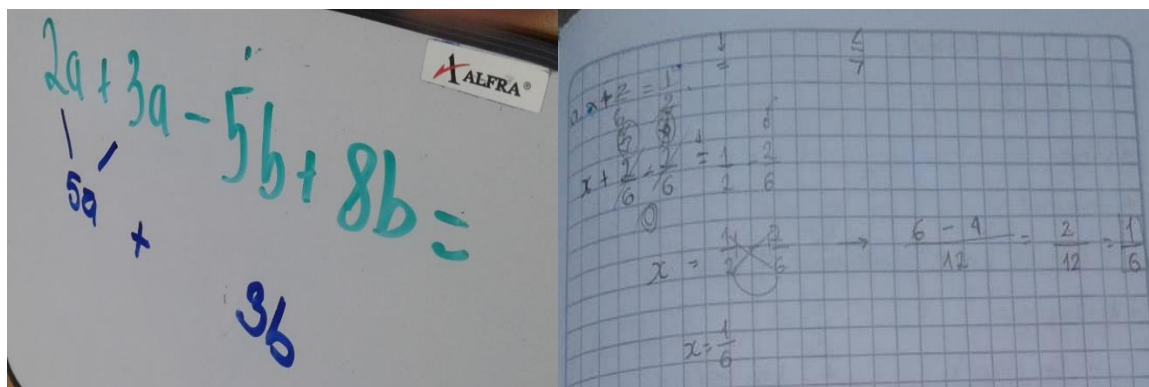 2a + 3a - 5b + 8b =
5a + 3b
ALFRA®
a. x + 2/6 = 1/2
x + 2/6 - 2/6 = 1/2 - 2/6
0
x = 1/2 2/6 → (6 - 4)/12 = 2/12 = 1/6
x = 1/6